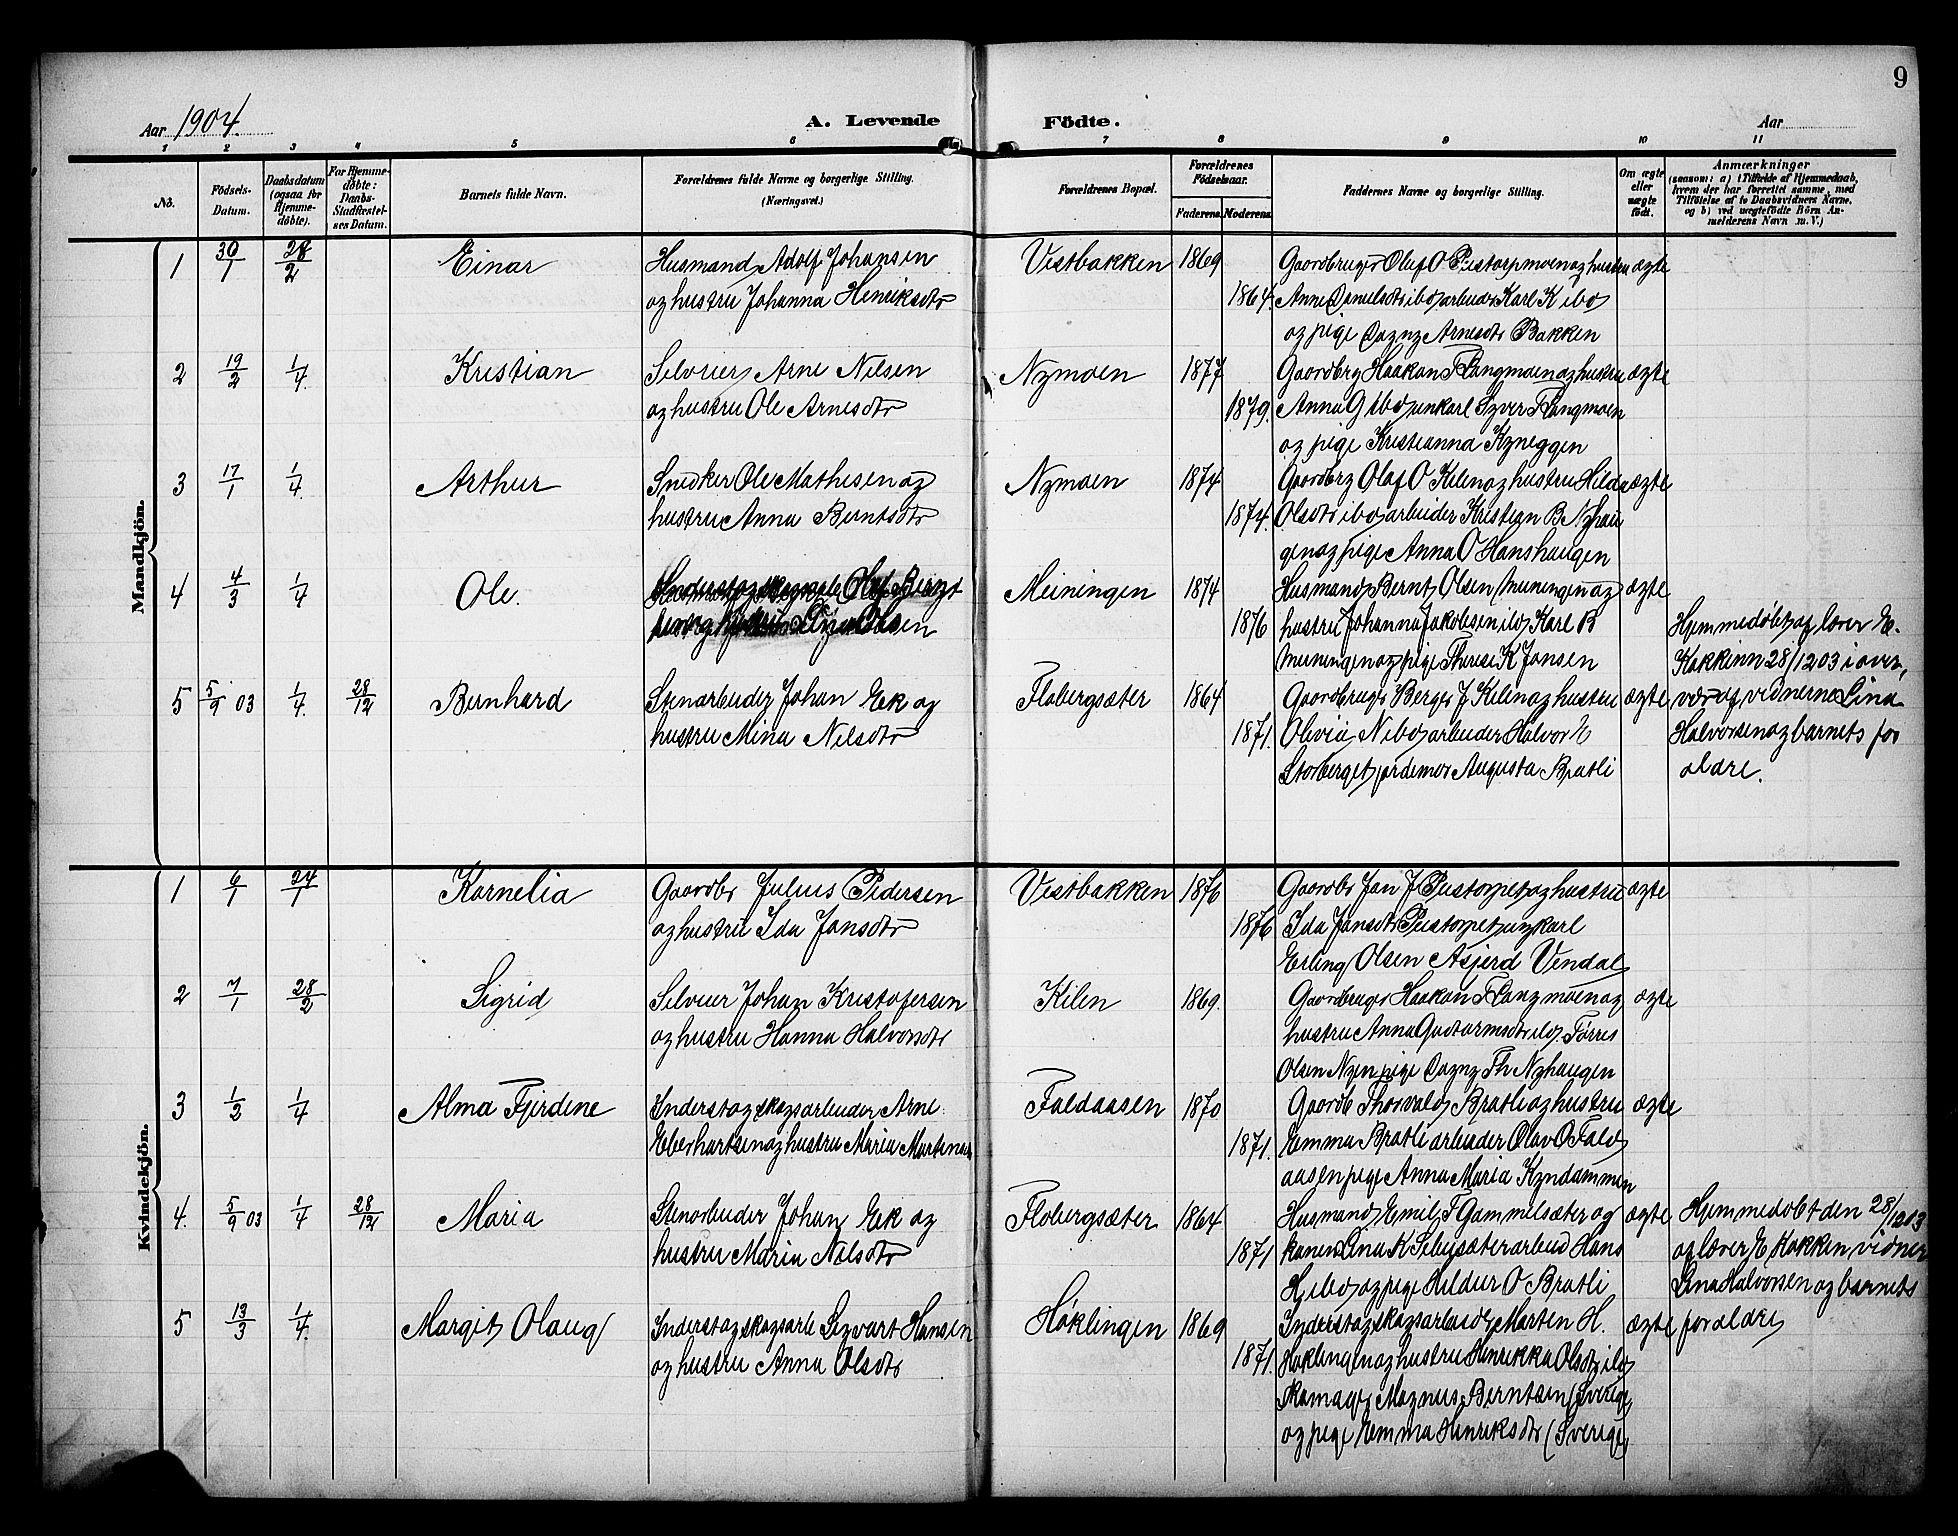 9
Aar 1904. A. Levende Födte. Aar
1 2 3 4 5 6 7 8 9 10 11
No.
Födsels-
Datum.
Daabsdatum
(ogsaa for
Hjemme-
döbte).
For Hjemme-
döbte:
Daabs-
Stadfæstel-
ses Datum.
Barnets fulde Navn.
Forældrenes fulde Navne og borgerlige Stilling.
(Næringsvei.)
Forældrenes Bopæl.
Forældrenes
Födselsaar.
Faderens. Moderens.
Faddernes Navne og borgerlige Stilling.
Om ægte
eller
uægte
födt.
Anmærkninger
(saasom: a) i Tilfælde af Hjemmedaab,
hvem der har forrettet samme, med
Tilföielse af to Daabsvidners Navne,
og b) ved uægtefödte Börn An-
melderens Navn m. V.)
Mandkjön.
1 30/1 28/2 Einar Husmand Adolf Johansen Vestbakken 1869 Gaardbruger Oluf O Pustorpmoen og hustru ægte
og hustru Johanna Henriksdtr 1864. Anne Danielsdtr ibd arbeider Karl K ibd
og pige Dagny Arnesdtr Bakken
2 19/2 1/4 Kristian Selveier Arne Nilsen Nymoen 1877 Gaardbrg Haakon F Langmoen og hustru ægte
og hustru Ole Arnesdtr 1879. Anna G ibd unkarl Syver F Langmoen
og pige Kristianna Kyneggen
3 17/1 1/4 Arthur Snedker Ole Mathisen og Nymoen 1874 Gaardbrg Olaf O Kilen og hustru Hilda ægte
hustru Anna Berntsdtr 1874. Olsdtr ibd arbeider Kristian B Nyhau
gen og pige Anna O Hanshaugen
4 4/3 1/4 Ole. Inderst og skogsarb Olaf Bernt Meiningen 1874 Husmand Bernt Olsen Meiningen og ægte
sen og hustru 1876 hustru Johanna Jakobsen ibd Karl B
Meiningen og pige Therese K Jansen
Hjemmedøbt af lærer E.
Kokkinn 28/12 03 i over,
5 5/9 03 1/4 28/12 Bernhard Stenarbeider Johan Eek og Flobergsæter 1864 Gaardbruger Berger J Kilen og hustru ægte vær af vidnerne Lina
hustru Mina Nilsdtr 1871. Olivia N ibd arbeider Halvor E Halvorsen og barnets for
Storberget jordemor Augusta Bratli ældre.
Kvindekjön.
1 6/1 24/1 Kornelia Gaardbr Julius Pedersen Vestbakken 1876 Gaardbr Jan J Pustorpet og hustru ægte
og hustru Ida Jansdtr 1876 Ida Jansdtr Pustorpet ungkarl
Erling Olsen Asjerd Vendal
2 7/1 28/2 Sigrid Selveier Johan Kristofersen Kilen 1869. Gaardbruger Haakon F Langmoen og ægte
og hustru Hanna Halvorsdtr hustru Anna Gudtormsdtr ibd, Tørris
Olsen Nyen pige Dagny Th Nyhaugen
3 1/2 1/4 Alma Fjerdene Inderst og skogsarbeider Arne Faldaasen 1870 Gaardb Thorvald Bratli og hustru ægte
Eberhartsen og hustru Maria Martinsen 1871. Emma Bratli arbeider Olav O Fald
aasen pige Anna Maria Kyndammen
4. 5/9 03 1/4 28/12 Maria Stenarbeider Johan Eek og Flobergsæter 1864 Husmand Emil F Gammelsæter og ægte Hjemmedøbt den 28/12 03
hustru Maria Nilsdtr 1871 konen Lina K Sæter arbeid Hans af lærer E Kokken vidner
H ibd og pige Hildur O Bratli Lina Halvorsen og barnets
5 13/3 1/4. Margit Olaug Inderst og skogsarb Sigvart Hansen Høklingen 1869 Inderst og skogsarbeider Morten H. ægte forældre
og hustru Anna Olsdtr 1871. Høklingen og hustru Henrikka Olsdtr ibd
skomager Magnus Berntsen (Sverige)
og pige Emma Henriksdtr (Sverige)